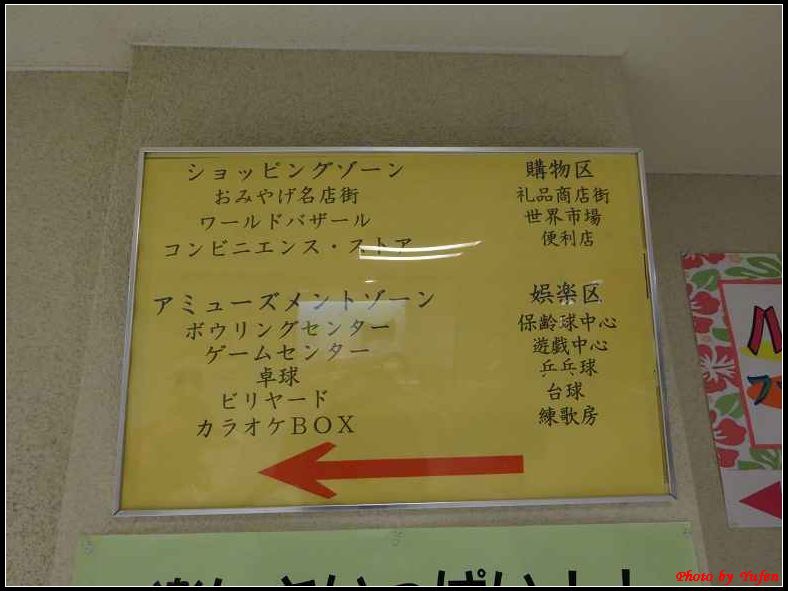 ショッピングゾーン 購物区
おみやげ名店街 礼品商店街
ワールドバザール 世界市場
コンビニエンス・ストア 便利店
アミューズメントゾーン 娯楽区
ボウリングセンター 保齢球中心
ゲームセンター 遊戯中心
卓球 乒乓球
ビリヤード 台球
カラオケBOX 練歌房
Photo by Yufen